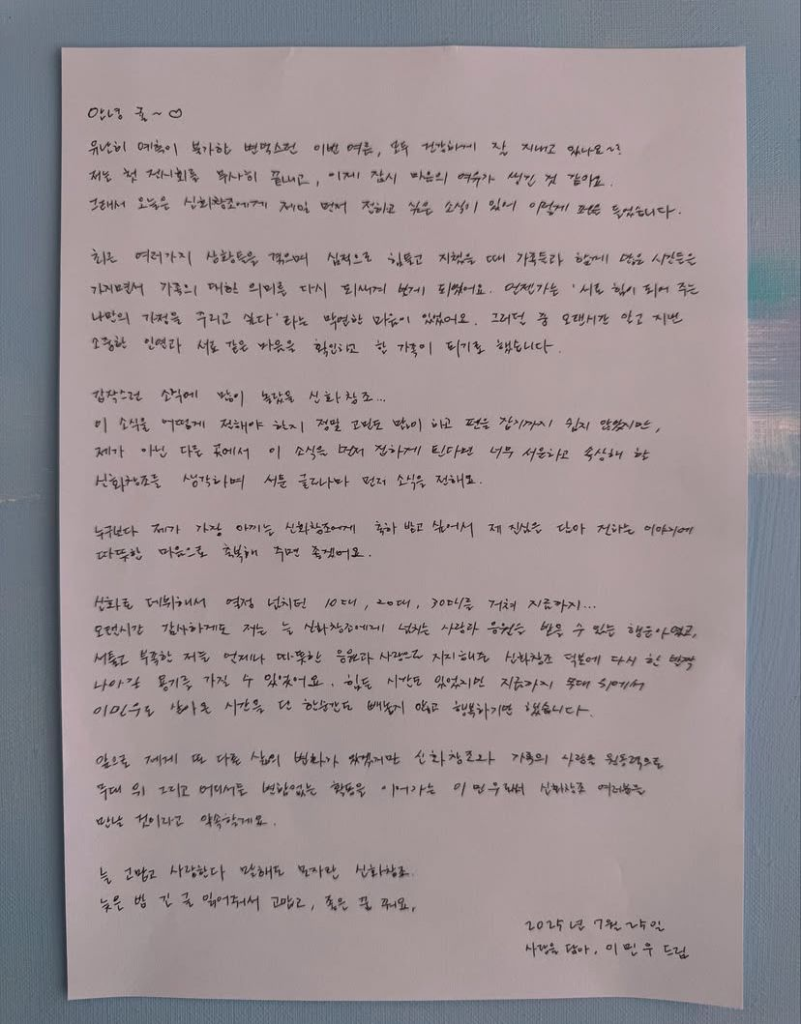 안녕 귤~♡
유난히 예측이 불가한 변덕스런 이번 여름, 모두 건강하게 잘 지내고 있나요~?
저는 첫 전시회를 무사히 끝내고, 이제 잠시 마음의 여유가 생긴 것 같아요.
그래서 오늘은 신화창조에게 제일 먼저 전하고 싶은 소식이 있어 이렇게 펜을 들었습니다.
최근 여러가지 상황들을 겪으며 심적으로 힘들고 지쳤을 때 가족들과 함께 많은 시간들을
가지면서 가족의 대한 의미를 다시 되새겨 보게 되었어요. 언젠가는 '서로 힘이 되어 주는
나만의 가정을 꾸리고 싶다'라는 막연한 마음이 있었어요. 그러던 중 오랜시간 알고 지낸
소중한 인연과 서로 같은 마음을 확인하고 한 가족이 되기로 했습니다.
갑작스런 소식에 많이 놀랐을 신화창조...
이 소식을 어떻게 전해야 하지 정말 고민도 많이 하고 펜을 잡기까지 쉽지 않았지만,
제가 아닌 다른 곳에서 이 소식을 먼저 전하게 된다면 너무 서운하고 속상해 할
신화창조를 생각하며 서툰 글로나마 먼저 소식을 전해요.
누구보다 제가 가장 아끼는 신화창조에게 축하 받고 싶어서 제 진심을 담아 전하는 이야기에
따뜻한 마음으로 축복해 주면 좋겠어요.
신화로 데뷔해서 열정 넘치던 10대, 20대, 30대를 거쳐 지금까지...
오랜시간 감사하게도 저는 늘 신화창조에게 넘치는 사랑과 응원을 받을 수 있는 행운아였고,
서툴고 부족한 저를 언제나 따뜻한 응원과 사랑으로 지지해준 신화창조 덕분에 다시 한 번 더
나아갈 용기를 가질 수 있었어요. 힘든 시간도 있었지만 지금까지 무대 위에서
이민우로 살아온 시간을 단 한순간도 빼놓지 않고 행복하기만 했습니다.
앞으로 제게 또 다른 삶의 변화가 있겠지만 신화창조와 가족의 사랑을 원동력으로
무대 위 그리고 어디서든 변함없는 활동을 이어가는 이민우로서 신화창조 여러분을
만날 것이라고 약속할게요.
늘 고맙고 사랑한다 말해도 모자란 신화창조.
늦은 밤 긴 글 읽어줘서 고맙고, 좋은 꿈 꿔요.
2025년 7월 25일
사랑을 담아, 이민우 드림